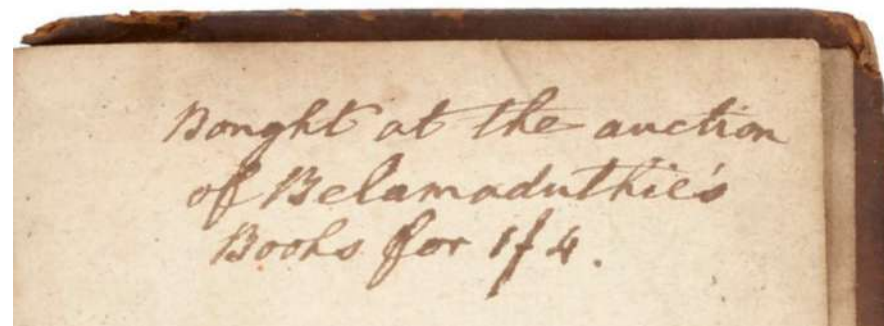 Bought at the auction
of Belamaduthie's
Books for 1/4.